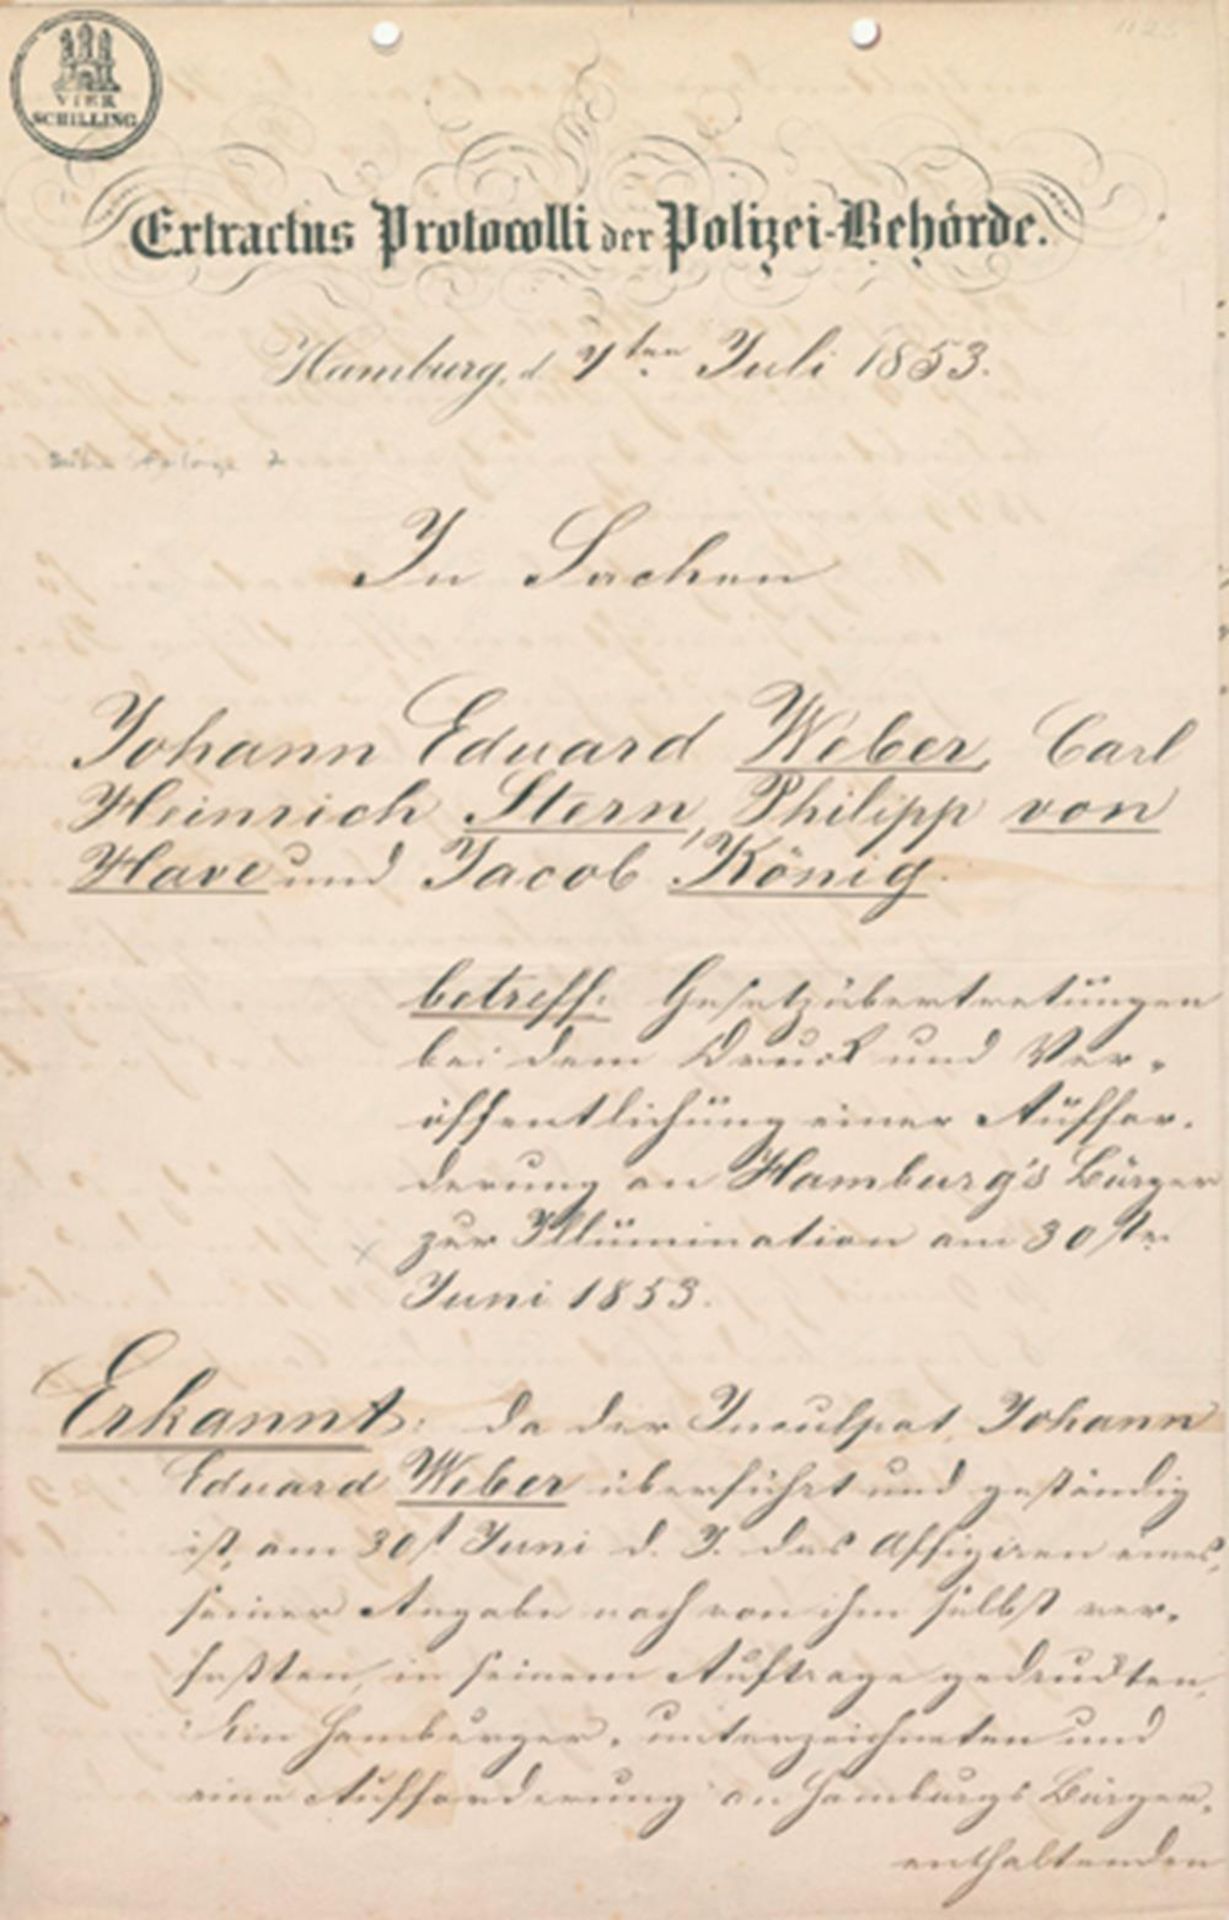 1125
VIER
SCHILLING
Extractus Protocolli der Polizei-Behörde.
Hamburg, d 7ten Juli 1853.
Anlage 2
In Sachen
Johann Eduard Weber, Carl
Heinrich Stern, Philipp von
Have und Jacob König.
betreff. Gesetzübertretungen
bei dem Druck und Ver-
öffentlichung einer Auffor-
derung an Hamburg's Bürger
zur Illumination am 30sten
Juni 1853.
Erkannt: da der Inculpat Johann
Eduard Weber überführt und geständig
ist, am 30st. Juni d. J. das Affigiren eines,
seiner Angabe nach von ihm selbst ver-
faßten, in seinem Auftrage gedruckten,
"Ein Hamburger" unterzeichneten und
eine Aufforderung an Hamburgs Bürger,
enthaltenden